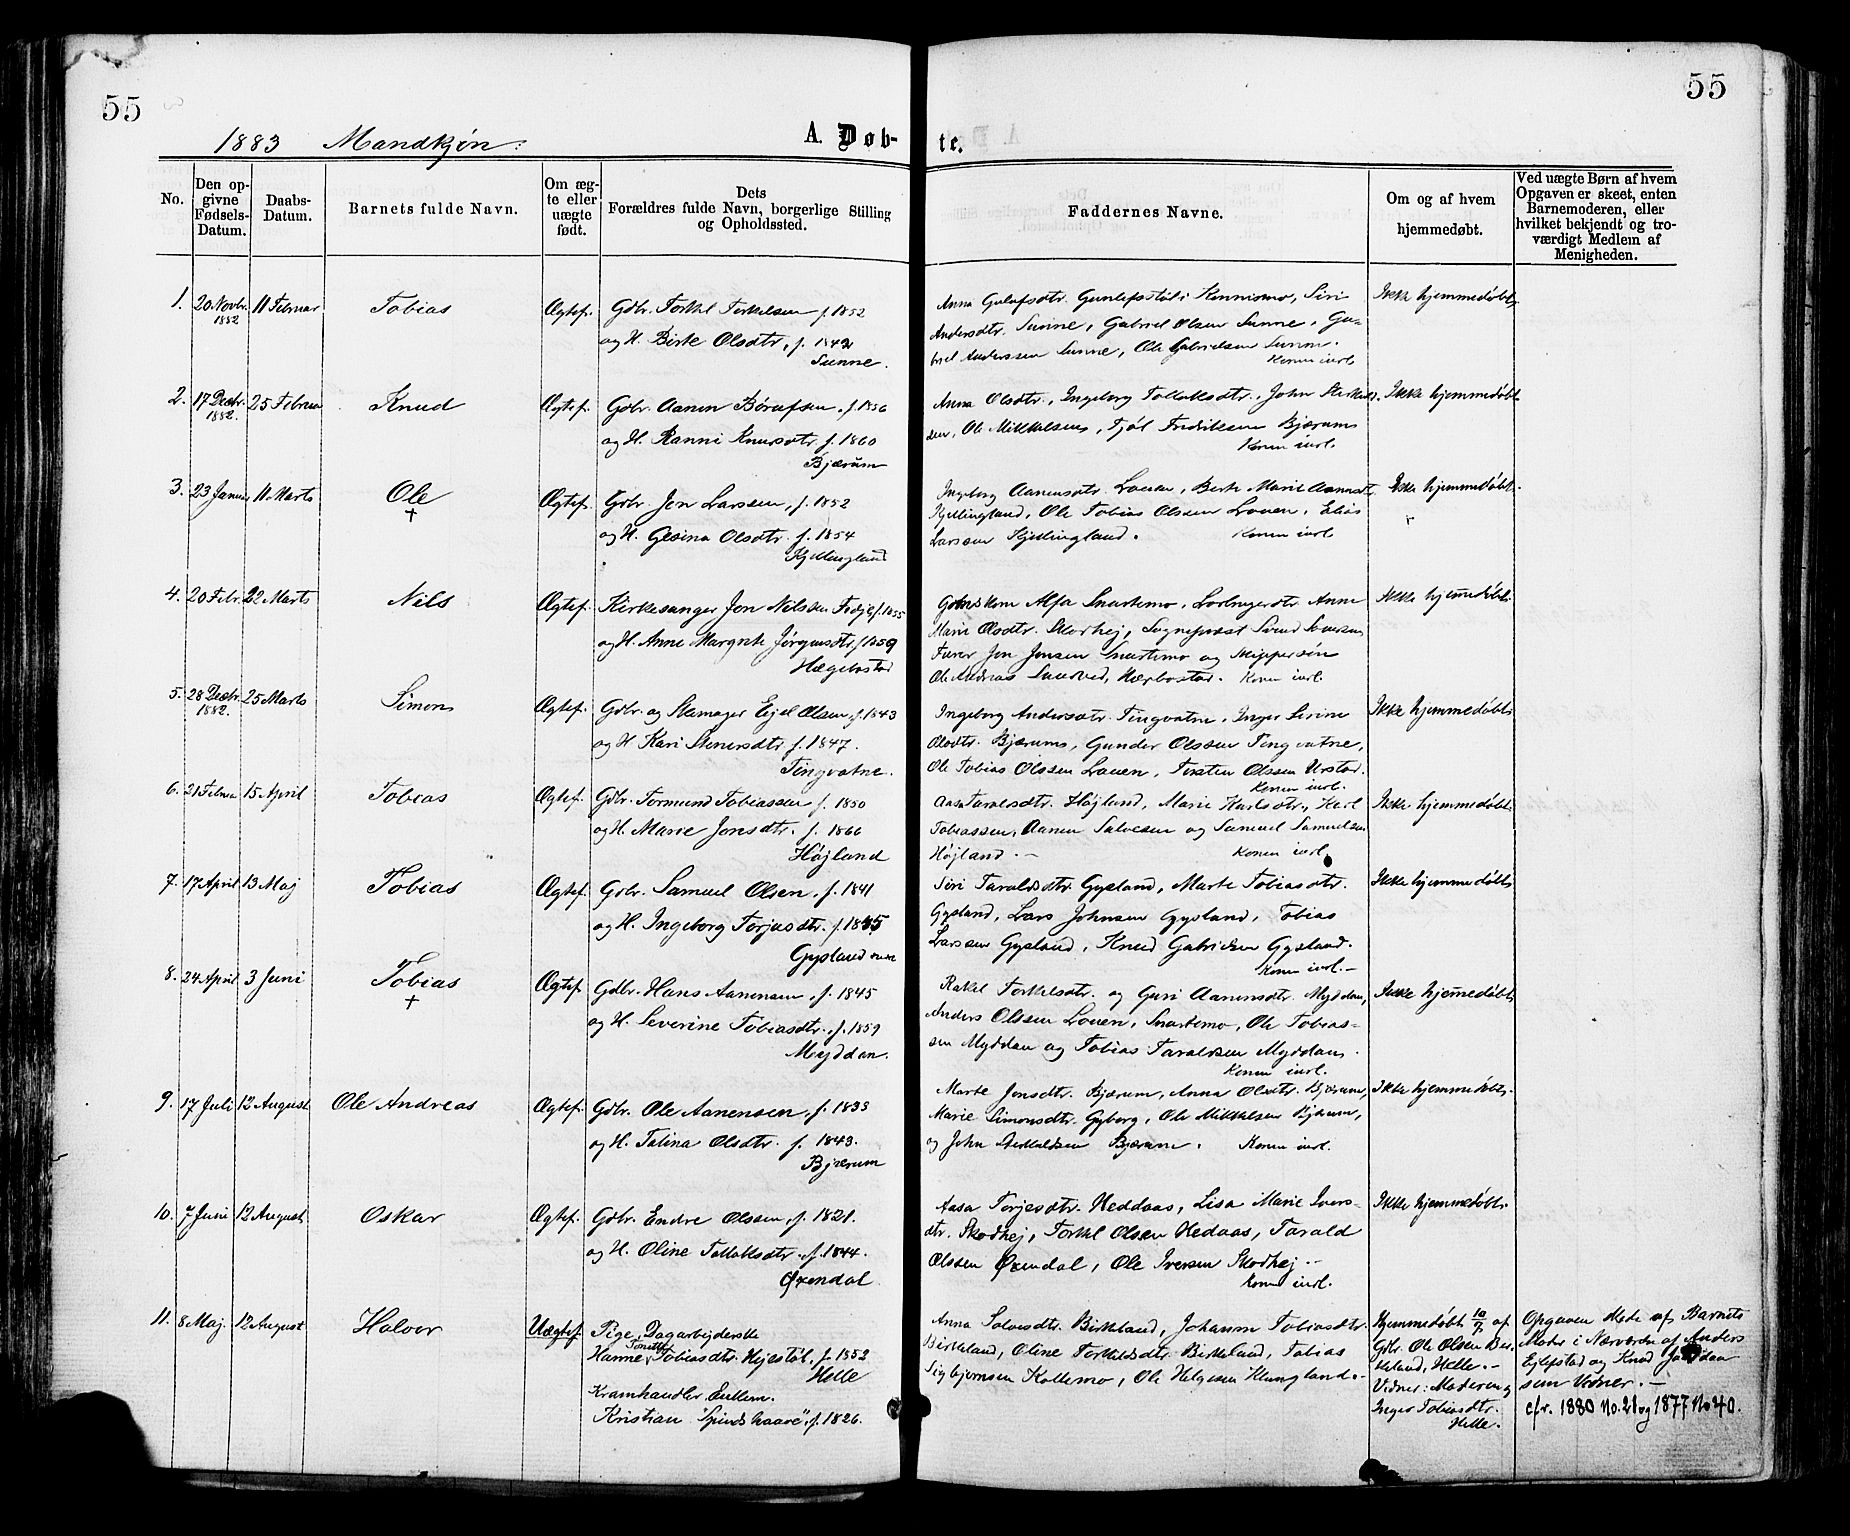 55
55
1883 Mandkjøn.
A. Døb-
te.
No.
Den op-
givne
Fødsels-
Datum.
Daabs-
Datum.
Barnets fulde Navn.
Om æg-
te eller
uægte
født.
Dets
Forældres fulde Navn, borgerlige Stilling
og Opholdssted.
Faddernes Navne.
Om og af hvem
hjemmedøbt.
Ved uægte Børn af hvem
Opgaven er skeet, enten
Barnemoderen, eller
hvilket bekjendt og tro-
værdigt Medlem af
Menigheden.
1. 20 Novbr. 1882 11 Februar Tobias Ægtef. Gdbr. Torkel Torkelsen f. 1852
og H. Birte Olsdtr. f. 1842
Sunne.
Anna Gulofsdtr. Siri
Andersdtr. Sunne, Gabriel Olsen Sunne, Ga-
briel Anderssen Sunne, Ole Gabrielsen Sunne.
Konen intl.
Ikke hjemmedøbt
2. 17 Decbr. 1882. 25 Februar Knud Ægtef. Gdbr. Aanen Børufsen, f. 1856
og H. Ranni Knudsdtr. f. 1860
Bjærum
Anna Olsdtr., Ingeborg Tollaksdtr., John
sen, Ole Mikkelsen, Fredriksen Bjærum
Konen intl.
Ikke hjemmedøbt
3. 23 Januar 11 Marts Ole Ægtef. Gdbr. Jon Larssen, f. 1852
†
og H. Gesina Olsdtr. f. 1854
Kjellingland
Ingeborg Aanensdtr. Louen, Berte Marie Aanensdtr.
Kjellingland, Ole Tobias Olssen Louen, Elias
Larssen Kjellingland. Konen intl.
Ikke hjemmedøbt.
4. 20 Febr. 22 Marts Nils Ægtef. Kirkesanger Jon Nilssen Fedje f. 1855
og H. Anne Margrete Jørgensdtr. f. 1859
Hægebostad
Alfa Snartemo, Anne
Marie Olsdtr. Skodhej, Sognepræst Svend
Jon Jonsen Snartemo og Skippersøn
Ole Andreas Konen intl.
Ikke hjemmedøbt
5. 28 Decbr. 1882. 25 Marts Simon Ægtef. Gdbr. og Ejel Olsen, f. 1843
og H. Kari Stenersdtr. f. 1847.
Tingvatne.
Ingeborg Andersdtr. Tingvatne, Inger Serine
Olsdtr. Bjærum, Gunder Olssen Tingvatne,
Ole Tobias Olssen Louen, Torsten Olssen Urstad.
Konen intl.
Ikke hjemmedøbt
6. 21 Februar 15 April Tobias Ægtef. Gdbr. Tormund Tobiassen f. 1850
og H. Marie Jonsdtr. f. 1860
Højland
Aasa Taraldsdtr. Højland, Marie Karlsdtr., Karl
Tobiassen, Aanen Salvesen og Samuel Samuelsen
Højland.— Konen intl.
Ikke hjemmedøbt
7. 17 April 13 Maj Tobias Ægtef. Gdbr. Samuel Olsen, f. 1841
og H. Ingeborg Torjusdtr. f. 1845
Gysland
Siri Taraldsdtr. Gysland, Marte Tobiasdtr.
Gysland, Lars Johnsen Gysland, Tobias
Larssen Gysland, Knud Gabrielsen Gysland.
Konen intl.—
Ikke hjemmedøbt
8. 24 April 3 Juni Tobias Ægtef. Gdbr. Hans Aanensen, f. 1845
†
og H. Severine Tobiasdtr. f. 1859
Myddan.
Rakel Torkelsdtr. og Guri Aanensdtr. Myddan,
Anders Olssen Louen, Snartemo, Ole Tobias-
sen Myddan og Tobias Taraldsen Myddan.
Konen intl.
Ikke hjemmedøbt
9. 17 Juli 12 August Ole Andreas Ægtef. Gdbr. Ole Aanensen, f. 1833
og H. Talina Olsdtr. f. 1843.
Bjærum
Marte Jonsdtr. Bjærum, Anna Olsdtr. Bjærum,
Marie Simonsdtr. Gyberg, Ole Mikkelsen Bjærum,
og John Bjærum. Konen intl.
Ikke hjemmedøbt.
10. 7 Juni 12 August Oskar Ægtef. Gdbr. Endre Olssen, f. 1821.
og H. Oline Tollaksdtr. f. 1844.
Øxendal
Aasa Torjesdtr. Heddaas, Lisa Marie Ivers-
dtr. Skodhej, Torkel Olsen Hedaas, Tarald
Olssen Øxendal, Ole Iversen Skodhej.—
Konen intl.
Ikke hjemmedøbt.
11. 8 Maj. 12 August Halvor Uægtef. Pige, Dagarbejderske
Hanne Tobiasdtr. f. 1852
Helle
Kramhandler,
Kristian f. 1826.
Anna Salvesdtr. Birkeland, Johanne Tobiasdtr.
Birkeland, Oline Torkelsdtr. Birkeland, Tobias
Sigbjørnsen Kollemo, Ole Helgesen Klungland.
Hjemmedøbt 10/7 af
Gdbr. Ole Olsen Bir-
keland, Helle.—
Vidner: Moderen og
Inger Tobiasdtr.
Helle.
Opgaven skede af Barnets
Moder i Nærværelse af Anders
Eglefstad og Knud
sen Vidner.—
cfr. 1880 No. 21 og 1877 No 40.